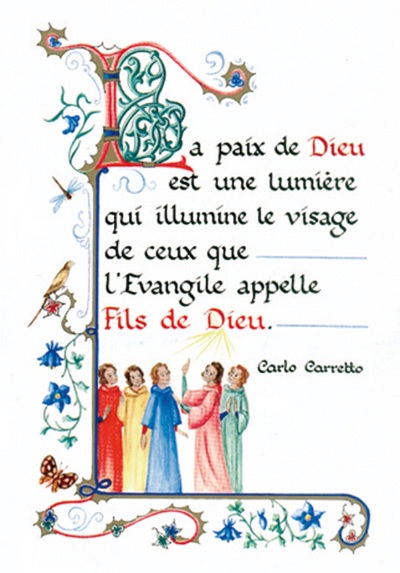 La paix de Dieu
est une lumière
qui illumine le visage
de ceux que
l'Evangile appelle
Fils de Dieu.
Carlo Carretto